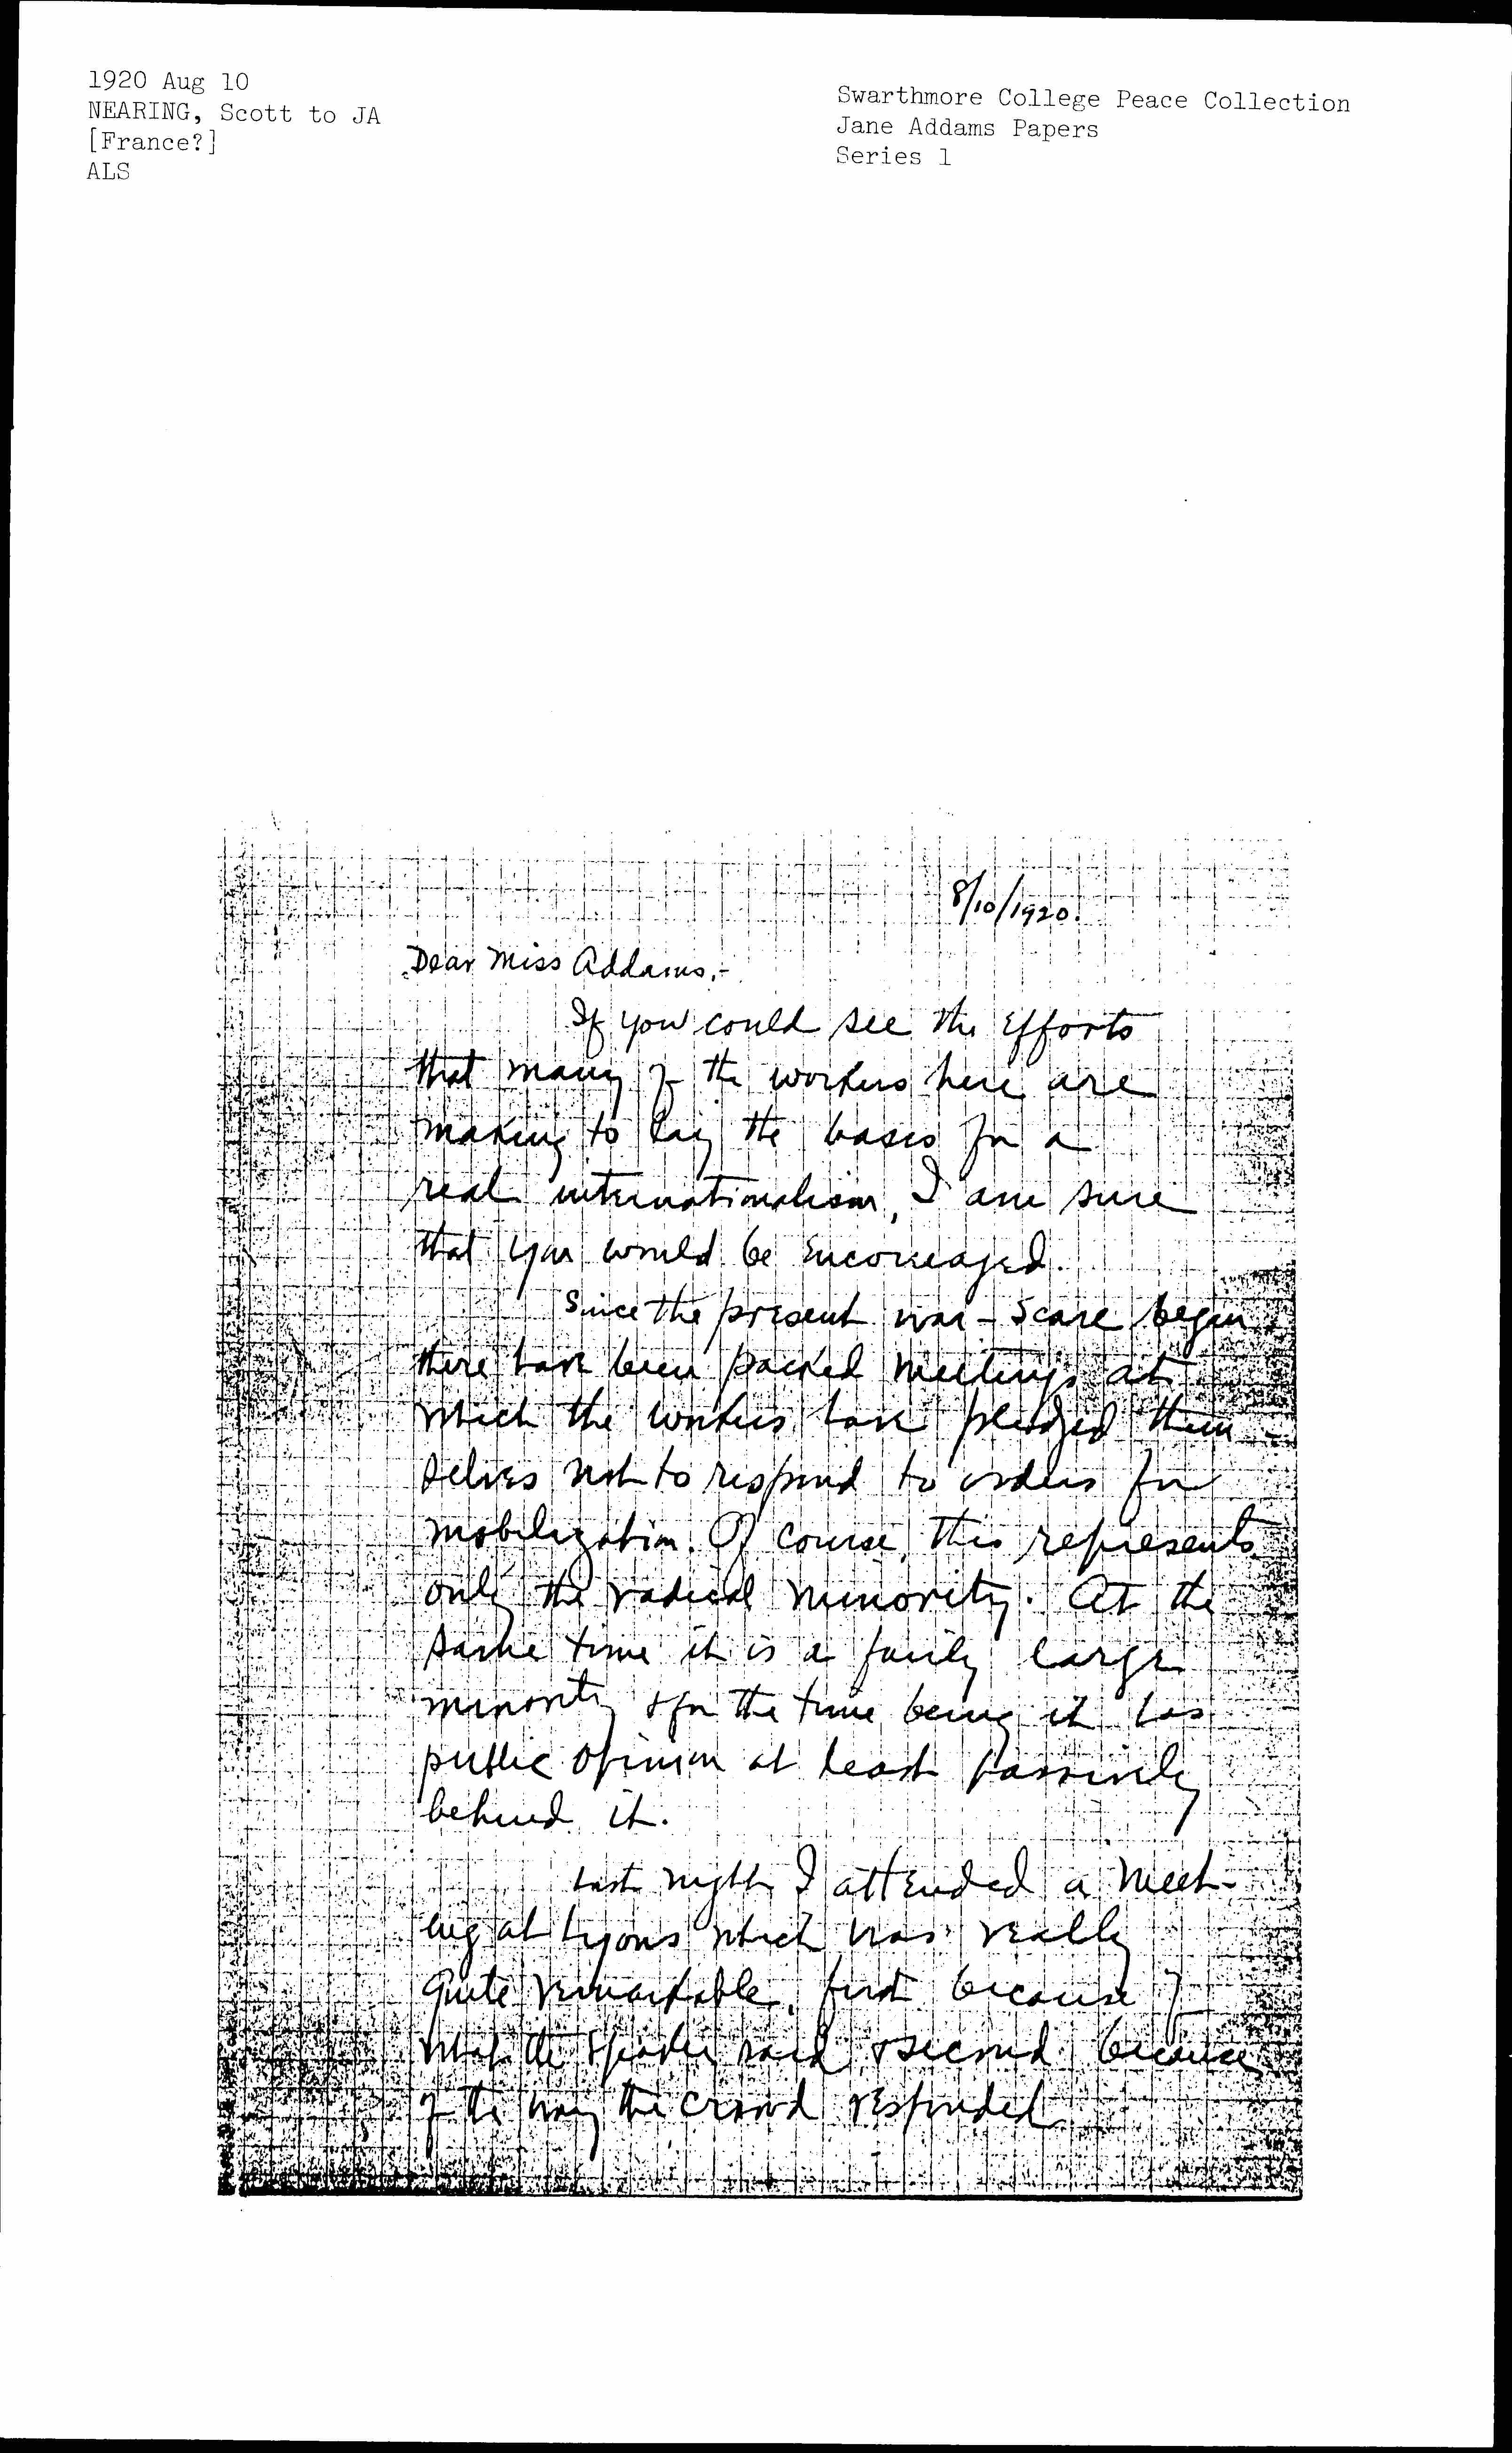 1920 Aug 10
NEARING, Scott to JA
[France?]
ALS
Swarthmore College Peace Collection
Jane Addams Papers
Series 1
8/10/1920.
Dear Miss Addams,-
If you could see the efforts
that many of the workers here are
making to lay the basis for a
real internationalism, I am sure
that you would be encouraged.
Since the present war-scare began
there have been packed meetings at
which the workers have pledged them-
selves not to respond to orders for
mobilization. Of course, this represents
only the radical minority. At the
same time it is a fairly large
minority & for the time being it has
public opinion at least passively
behind it.
Last night I attended a meet-
ing at Lyons which was really
quite remarkable, first because of
what the speaker said & second because
of the way the crowd responded